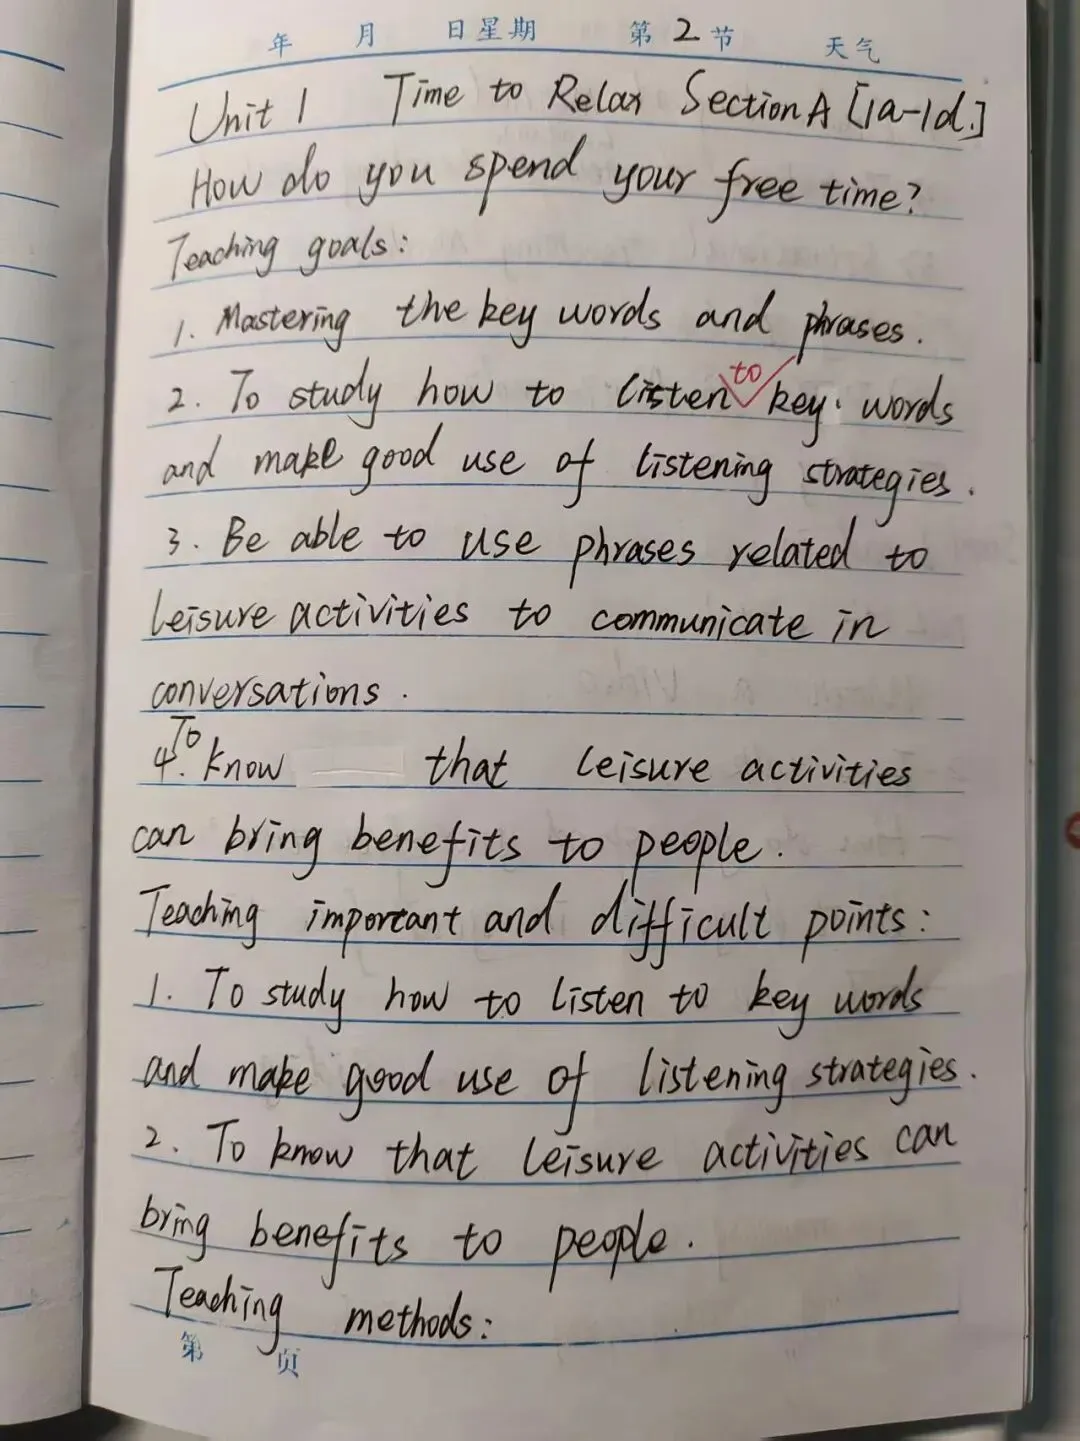 年 月 日 星期 第 2 节 天气
Unit 1 Time to Relax Section A [1a-1d.]
How do you spend your free time?
Teaching goals:
1. Mastering the key words and phrases.
2. To study how to listen to key words
and make good use of listening strategies.
3. Be able to use phrases related to
leisure activities to communicate in
conversations.
4. To know that leisure activities
can bring benefits to people.
Teaching important and difficult points:
1. To study how to listen to key words
and make good use of listening strategies.
2. To know that leisure activities can
bring benefits to people.
Teaching methods:
第 页